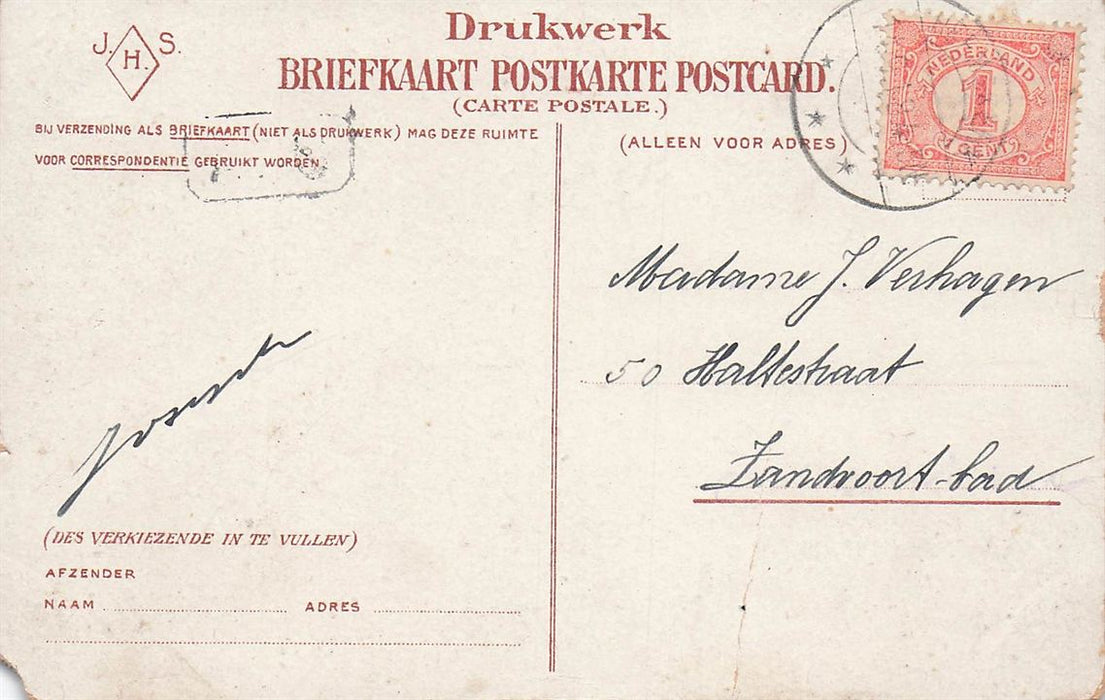 Drukwerk
J. H. S.
BRIEFKAART POSTKARTE POSTCARD.
(CARTE POSTALE.)
BIJ VERZENDING ALS BRIEFKAART (NIET ALS DRUKWERK) MAG DEZE RUIMTE
VOOR CORRESPONDENTIE GEBRUIKT WORDEN
(ALLEEN VOOR ADRES)
NEDERLAND
1
(1 CENT)
Madame J. Verhagen
50 Haltestraat
Zandvoort-bad
(DES VERKIEZENDE IN TE VULLEN)
AFZENDER
NAAM ADRES